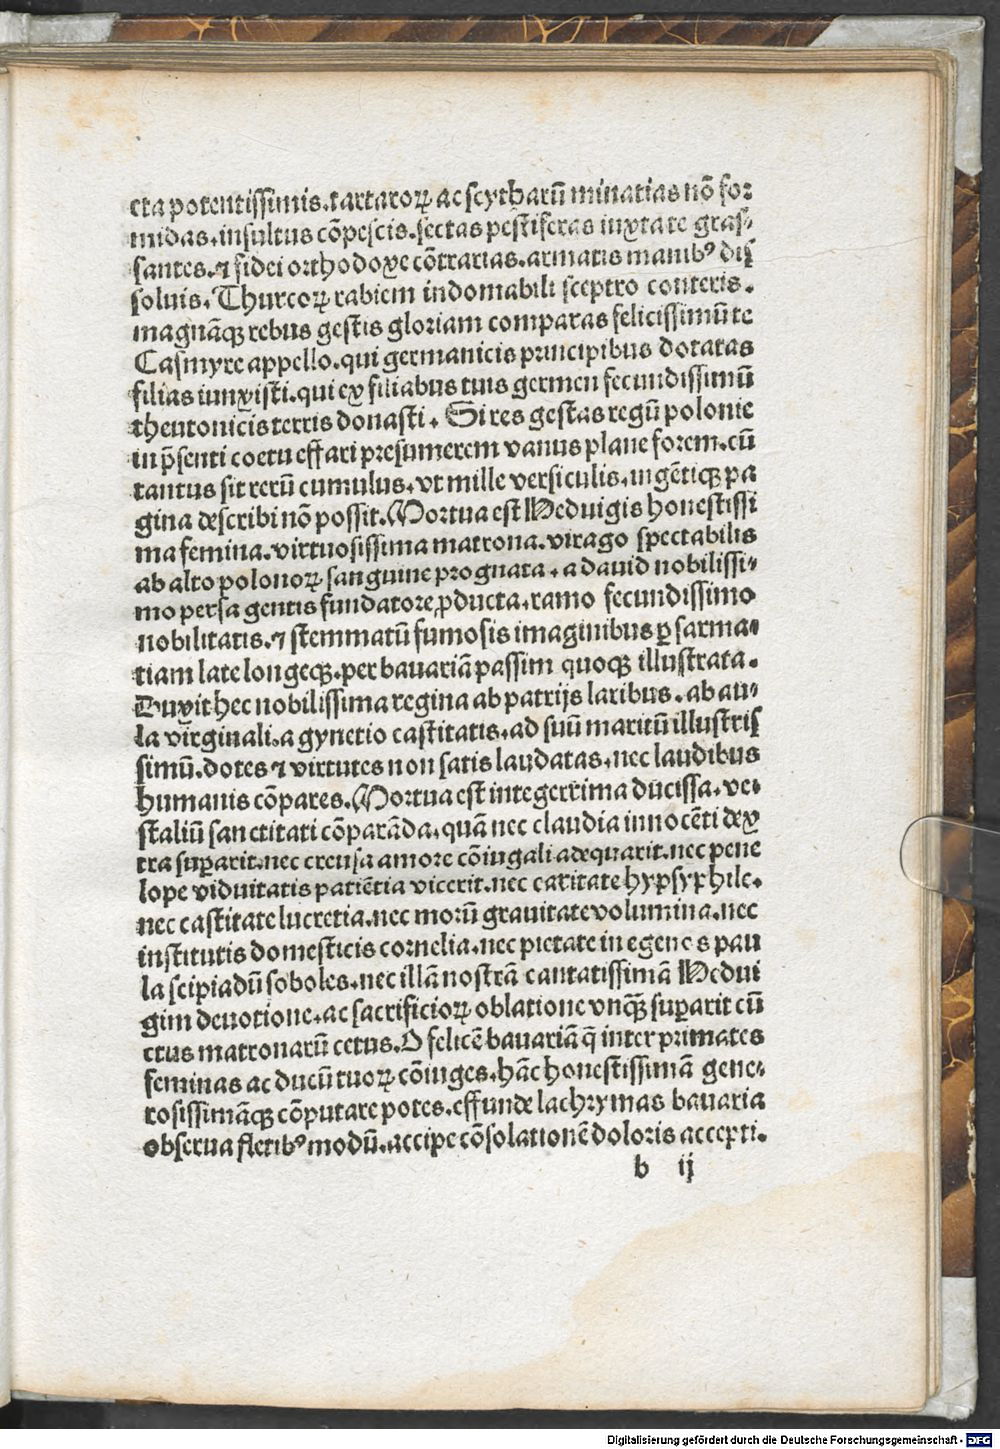 cta potentissimis.tartaroꝝ ac scytharū minatias nō for
midas.insultus cōpescis.sectas pestiferas iuxta te gras⸗
santes.⁊ fidei orthodoxe cōtrarias.armatis manibꝰ dis
soluis. Thurcoꝝ rabiem indomabili sceptro conteris.
magnāqꝫ rebus gestis gloriam comparas felicissimū te
Casmyre appello.qui germanicis principibus dotatas
filias iunxisti.qui ex filiabus tuis germen fecundissimū
theutonicis terris donasti. Si res gestas regū polonie
in p̄senti coetu effari presumerem vanus plane forem.cū
tantus sit rerū cumulus.vt mille versiculis.ingētiqꝫ pa
gina describi nō possit.Mortua est Heduigis honestissi
ma femina.virtuosissima matrona.virago spectabilis
ab alto polonoꝝ sanguine prognata.a dauid nobilissi⸗
mo persa gentis fundatore ꝓducta.ramo fecundissimo
nobilitatis.⁊ stemmatū fumosis imaginibus ꝑ sarma⸗
tiam late longeqꝫ.per bauariā passim quoqꝫ illustrata.
Duxit hec nobilissima regina ab patrijs laribus.ab au⸗
la virginali.a gynetio castitatis.ad suū maritū illustris
simū.dotes ⁊ virtutes non satis laudatas.nec laudibus
humanis cōpares.Mortua est integerrima ducissa.ve⸗
staliū sanctitati cōparāda.quā nec claudia innocēti dex
tra suꝑarit.nec creusa amore cōiugali adequarit.nec pene
lope viduitatis patiētia vicerit.nec caritate hypsyphile.
nec castitate lucretia.nec morū grauitate volumina.nec
institutis domesticis cornelia.nec pietate in egenos pau
la scipiadū soboles.nec illā nostrā cantatissimā Hedui
gim deuotione.ac sacrificioꝝ oblatione vnqꝫ̄ suꝑarit cū
ctus matronarū cetus.O felicē bauariā q̄ inter primates
feminas ac ducū tuoꝝ cōiuges.hāc honestissimā gene⸗
rosissimāqꝫ cōputare potes.effunde lachrymas bauaria
obserua fletibꝰ modū.accipe cōsolationē doloris accepti.
b ij
Digitalisierung gefördert durch die Deutsche Forschungsgemeinschaft - DFG